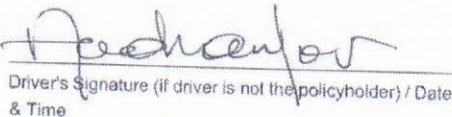 Driver's Signature (if driver is not the policyholder) / Date
& Time